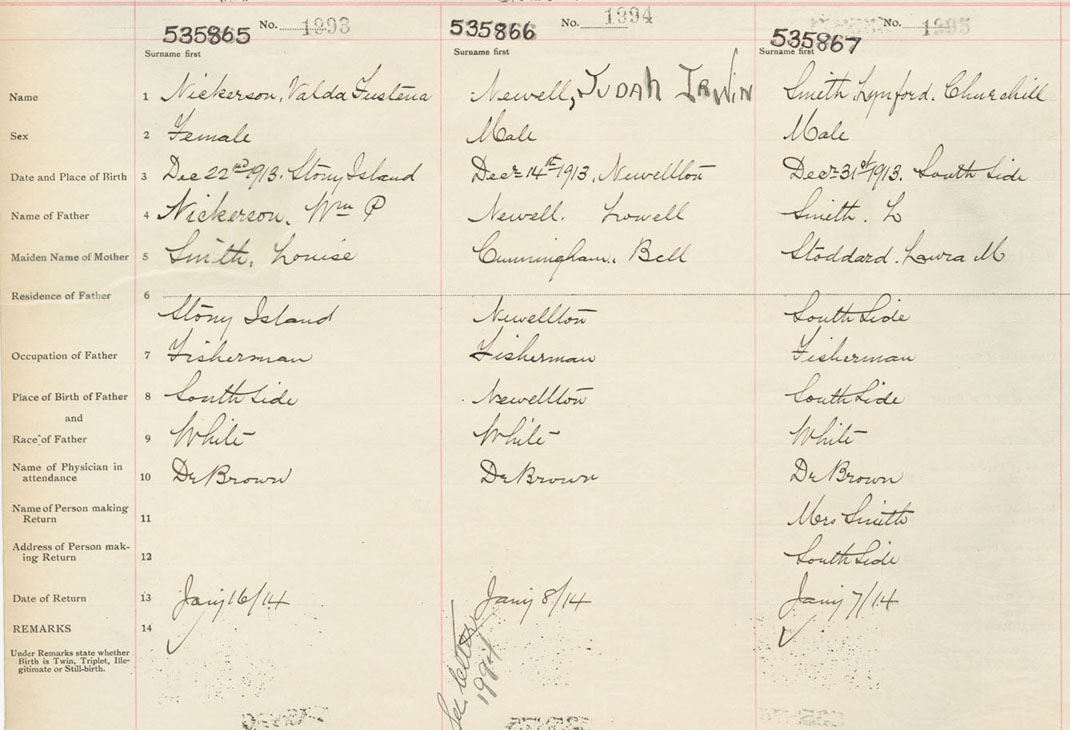 No. 1393 No. 1394 No. 1395
535865 535866 535867
Surname first Surname first Surname first
Name 1 Nickerson, Valda Fustena Newell, JUDAH IRWIN Smith, Lynford. Churchill
Sex 2 Female Male Male
Date and Place of Birth 3 Dec 22nd 1913. Stony Island Decr 14th 1913. Newellton Decr 31st 1913. South Side
Name of Father 4 Nickerson, Wm P Newell. Lowell Smith. L
Maiden Name of Mother 5 Smith, Louise Cunningham. Bell Stoddard. Laura M
Residence of Father 6
Stony Island Newellton South Side
Occupation of Father 7 Fisherman Fisherman Fisherman
Place of Birth of Father 8 South Side Newellton South Side
and
Race of Father 9 White White White
Name of Physician in
attendance 10 Dr Brown Dr Brown Dr Brown
Name of Person making
Return 11 Mrs Smith
Address of Person mak-
ing Return 12 South Side
Date of Return 13 Jany 16/14 Jany 8/14 Jany 7/14
REMARKS 14
Under Remarks state whether
Birth is Twin, Triplet, Ille-
gitimate or Still-birth.
See letter
1984